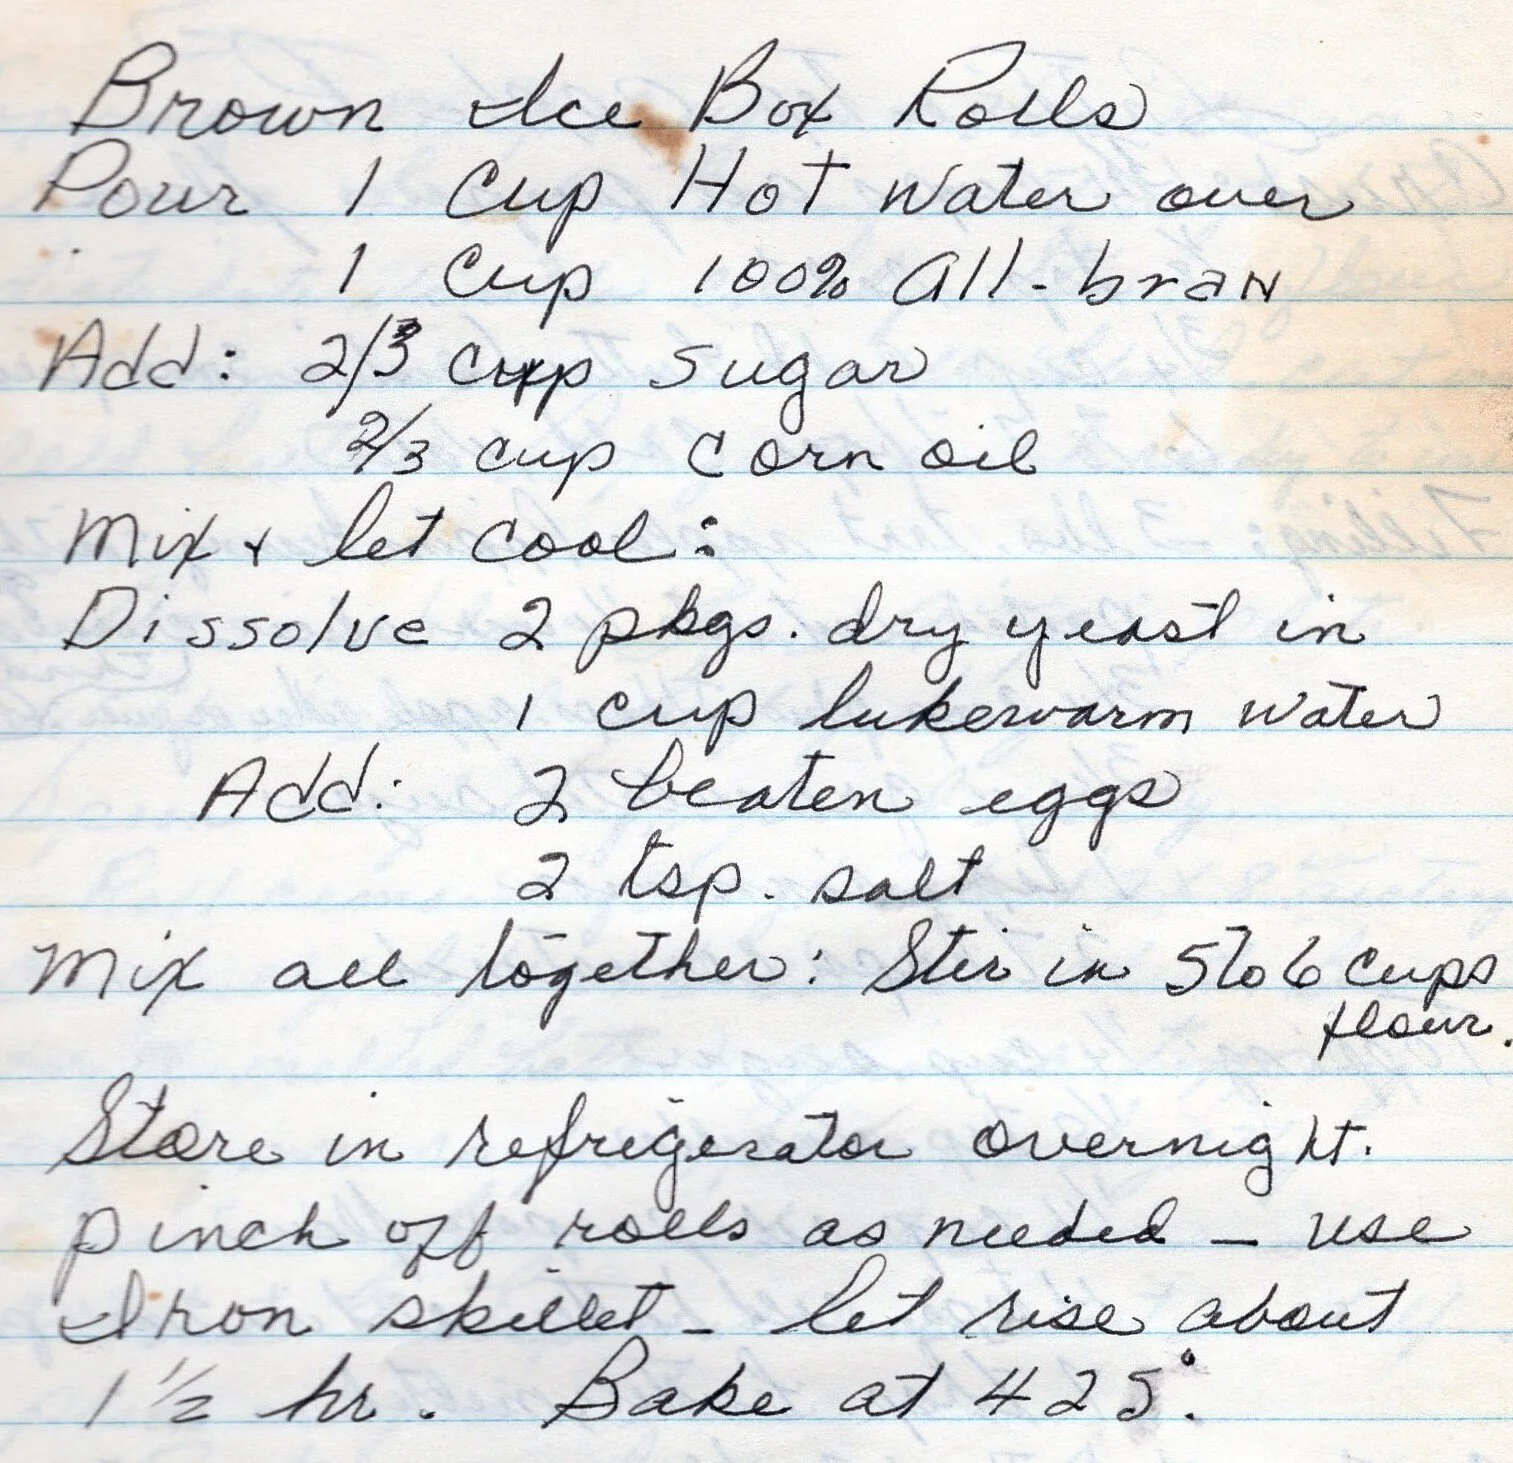 Brown Ice Box Rolls
Pour 1 cup Hot water over
1 cup 100% All-bran
Add: 2/3 cup sugar
2/3 cup corn oil
Mix & let cool:
Dissolve 2 pkgs. dry yeast in
1 cup lukewarm water
Add: 2 beaten eggs
2 tsp. salt
Mix all together: Stir in 5 to 6 cups
flour.
Store in refrigerator overnight.
pinch off rolls as needed – use
Iron skillet – let rise about
1 1/2 hr. Bake at 425°.